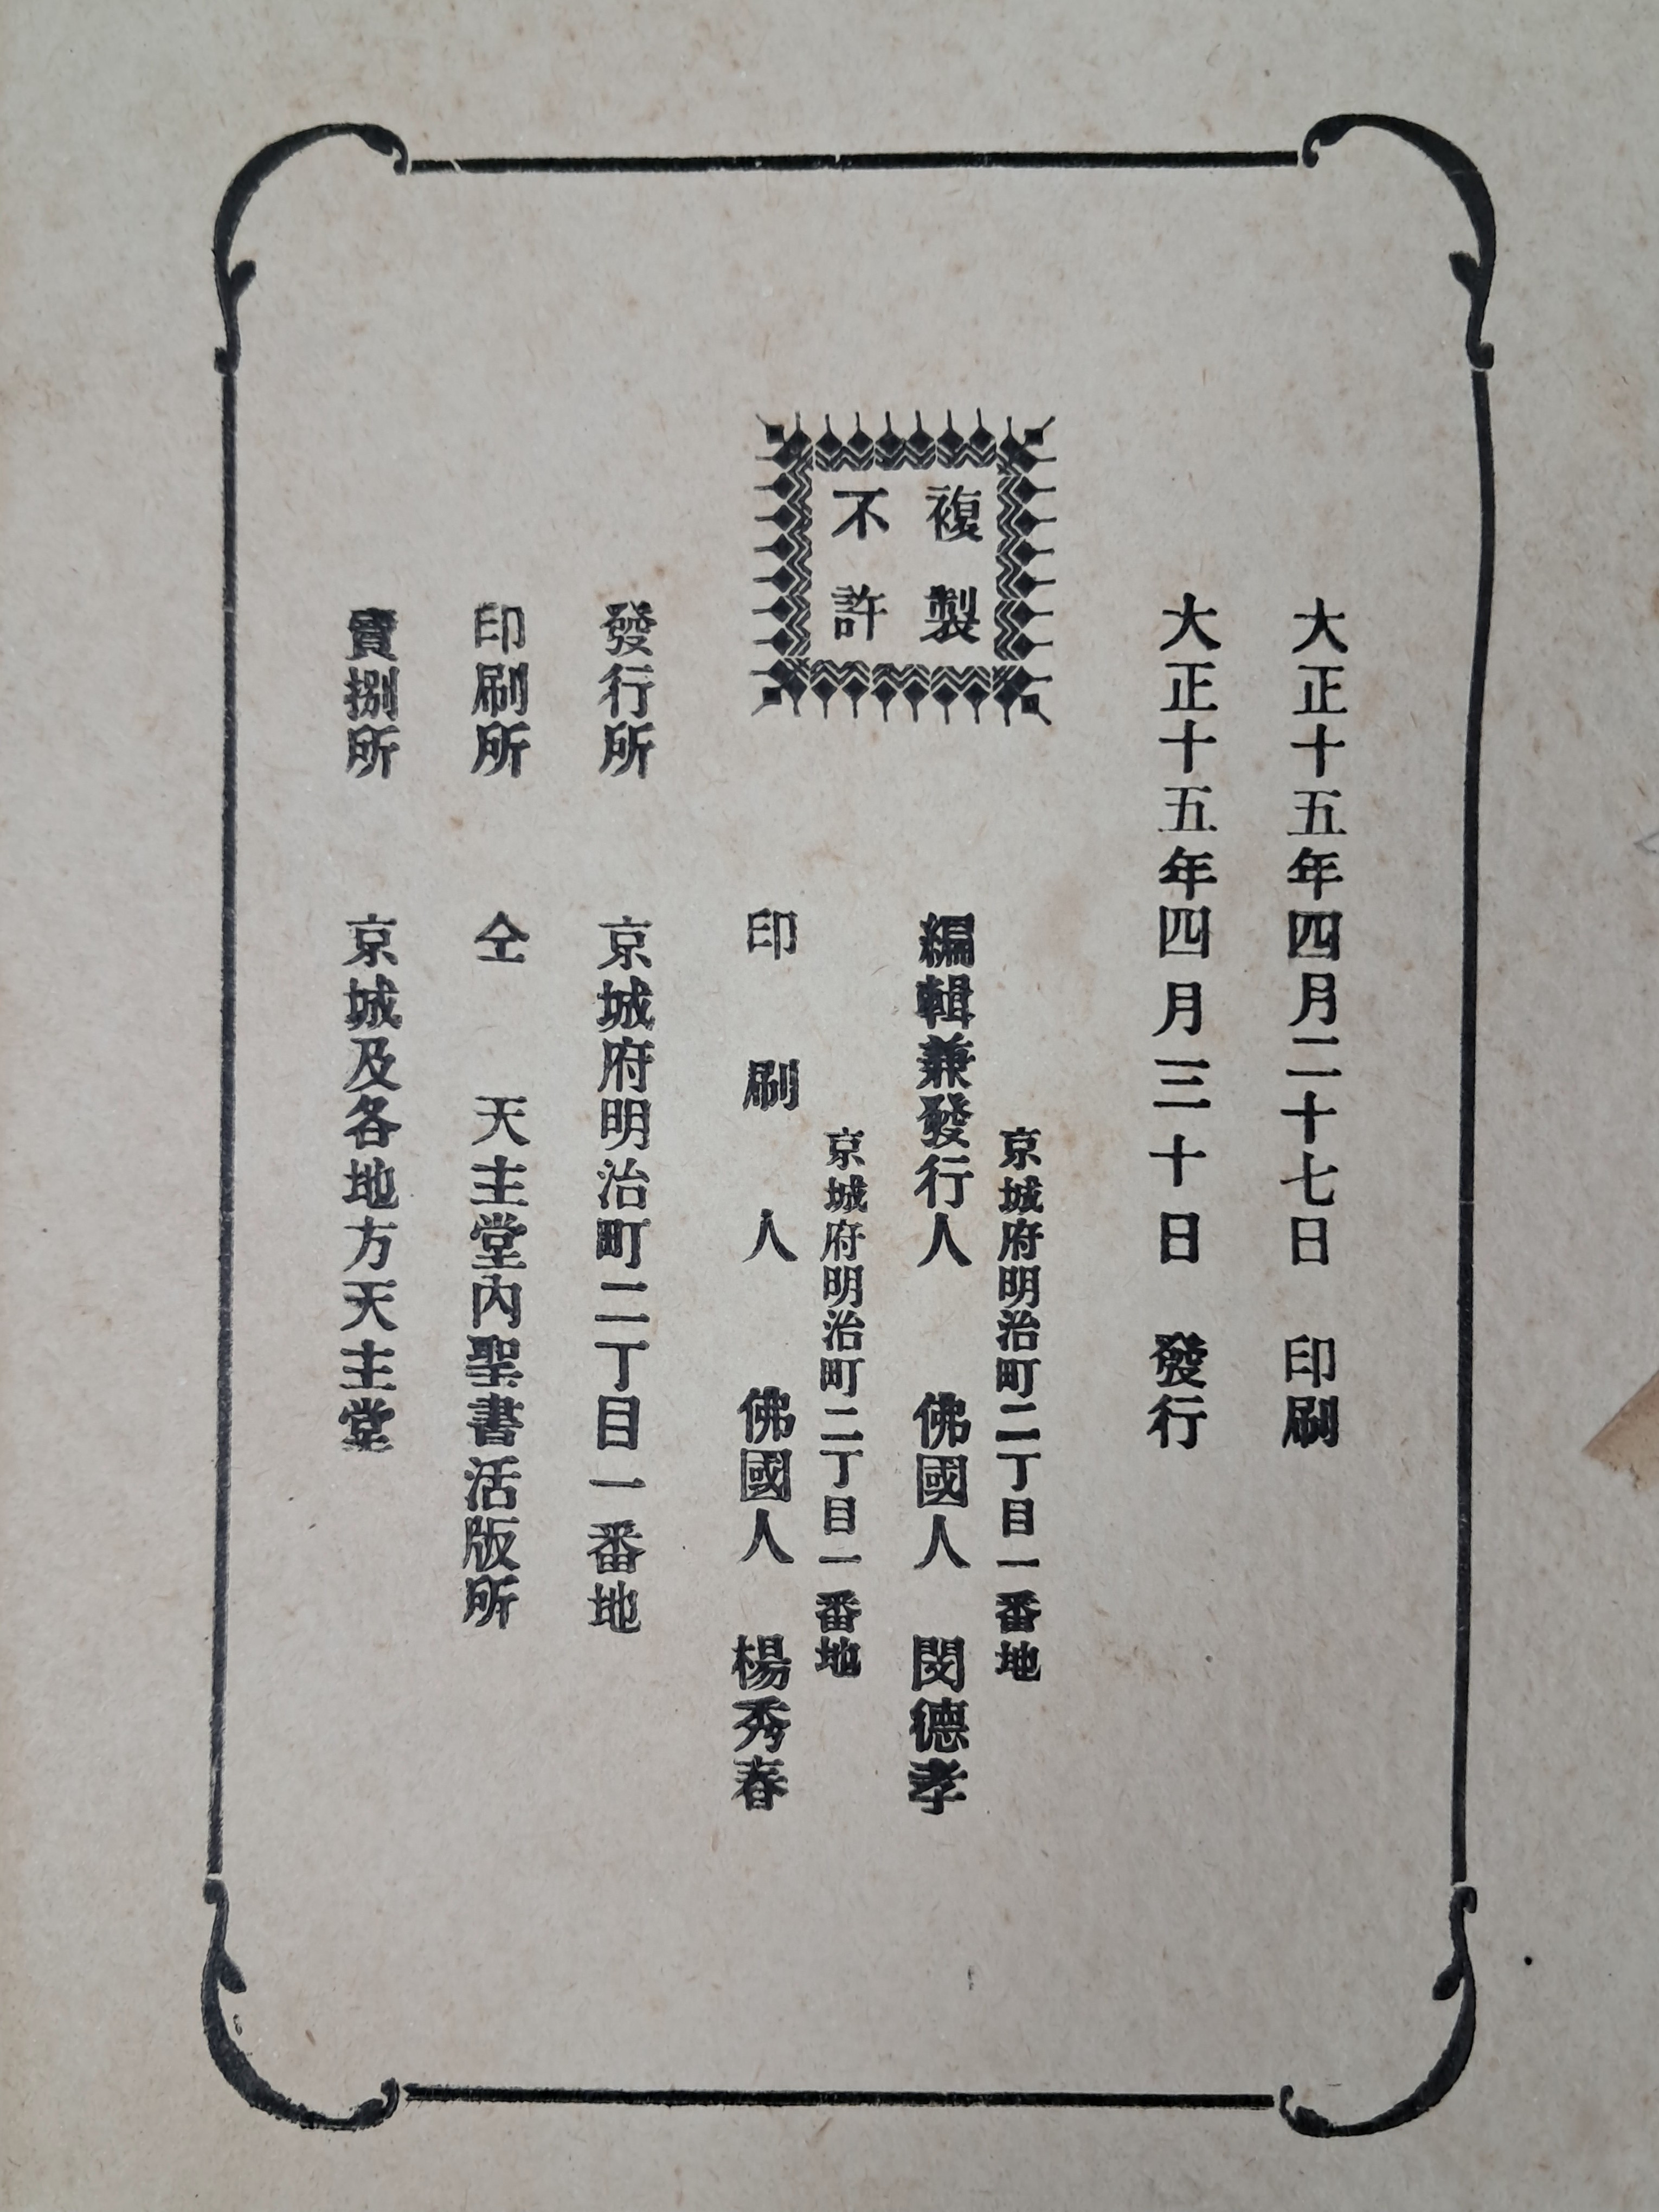 大正十五年四月二十七日 印刷
大正十五年四月三十日 發行
複製
不許
京城府明治町二丁目一番地
編輯兼發行人 佛國人 閔德孝
京城府明治町二丁目一番地
印刷人 佛國人 楊秀春
發行所 京城府明治町二丁目一番地
印刷所 仝 天主堂內聖書活版所
賣捌所 京城及各地方天主堂